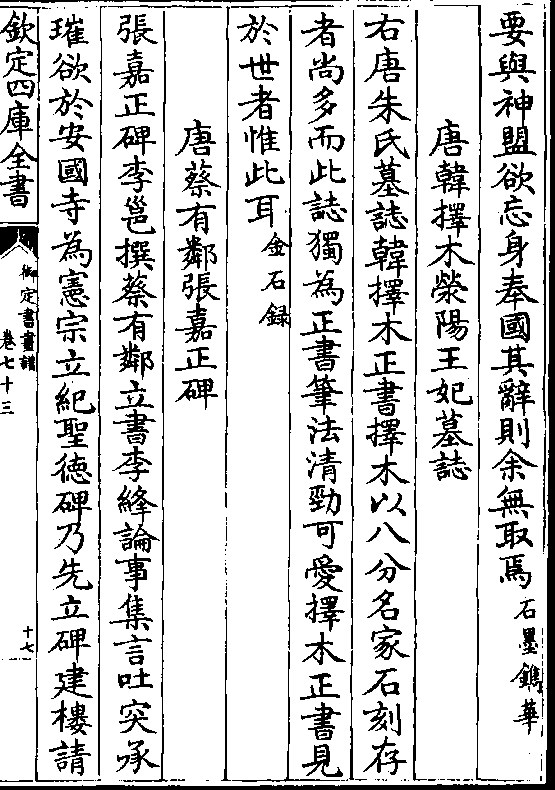 要與神盟欲忘身奉國其辭則余無取焉石墨鐫華
唐韓擇木滎陽王妃墓誌
右唐朱氏墓誌韓擇木正書擇木以八分名家石刻存
者尚多而此誌獨為正書筆法清勁可愛擇木正書見
於世者惟此耳金石録
唐蔡有鄰張嘉正碑
張嘉正碑李邕撰蔡有鄰立書李絳論事集言吐突承
璀欲於安國寺為憲宗立紀聖徳碑乃先立碑建樓請
欽定四庫全書
御定書畫譜
卷七十三
十七